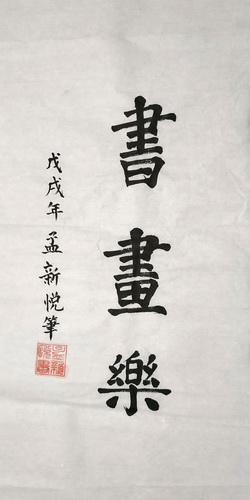 書畫樂
戊戌年孟新悅筆